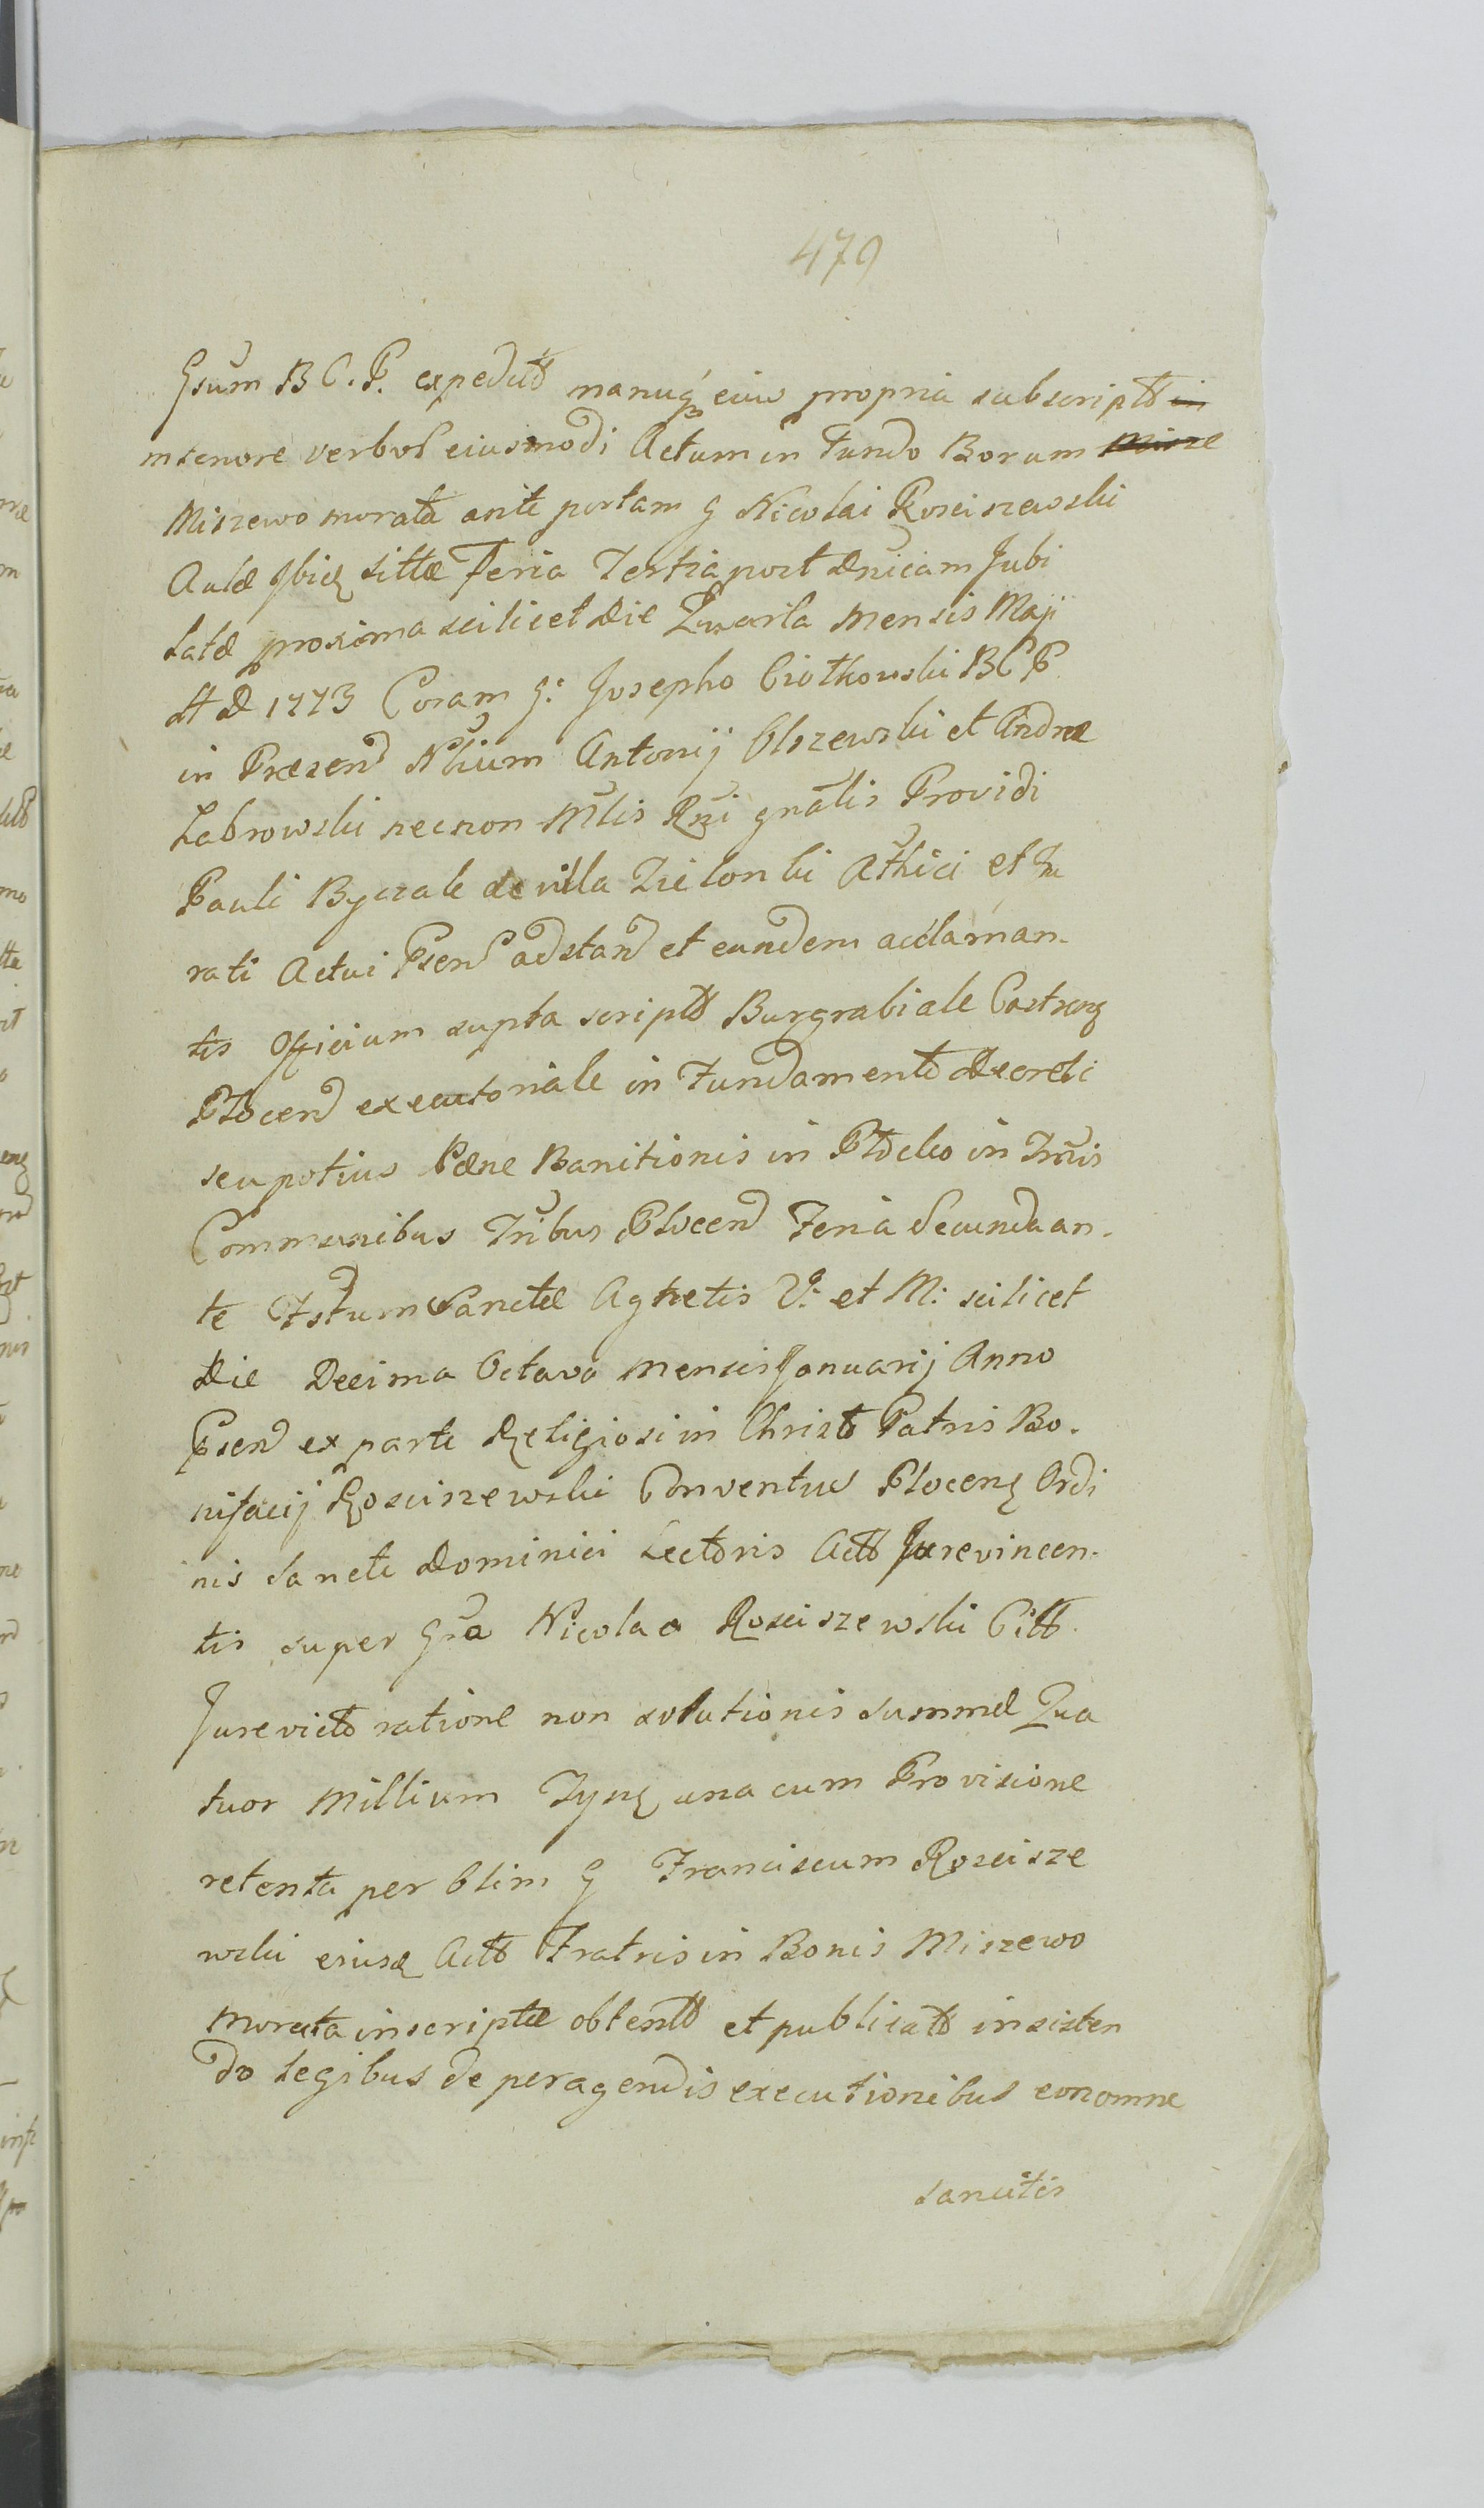 479
Gsum B C. P. expeditt manuq3 eius propria subscriptt in
m tenore verbor eiusmodi Actum in Fundo Bonum Misze
Miszewo murata ante portam G Nicolai Rosciszewski
Aulæ Ibiq sittæ Feria Tertia post Dnicam Jubi
latæ proxima scilicet Die Quarta Mensis Maji
A D 1773 Coram G: Josepho Ciołkowski B C P
in Præsend Nlium Antonij Olszewski et Andreæ
Zabrowski necnon Mlis Rni gnalis Providi
Pauli de villa Zielonki Athici et Ju
rati Actui Psend adstand et eundem acclaman-
tis Officium supta scriptt Burgrabiale Castrenq
Plocend executoriale in Fundamento Decreti
seu potius Pænæ Banitionis in Ptdelio in Trnis
Communibus Tribus Plocend Feria Secunda an-
te Fstum Sanctæ Agnetis V: et M: scilicet
Die Decima Octava Mensis Januarij Anno
Psend ex parte Religiosi in Christo Patris Bo-
nifacij Rosciszewski Conventus Plocenq Ordi
nis Sancti Dominici Lectoris Actt Jurevincen-
tis super Gso Nicolao Rosciszewski Citt
Jurevicto ratione non solutionis Summæ Qua
tuor Millium Tynq una cum Provisione
retenta per Olim G Franciscum Roscisze
wski eiusq Actt Fratris in Bonis Miszewo
Murata inscriptæ obtentt et publicatt insisten
do Legibus de peragendis executionibus eonomne
sancitis